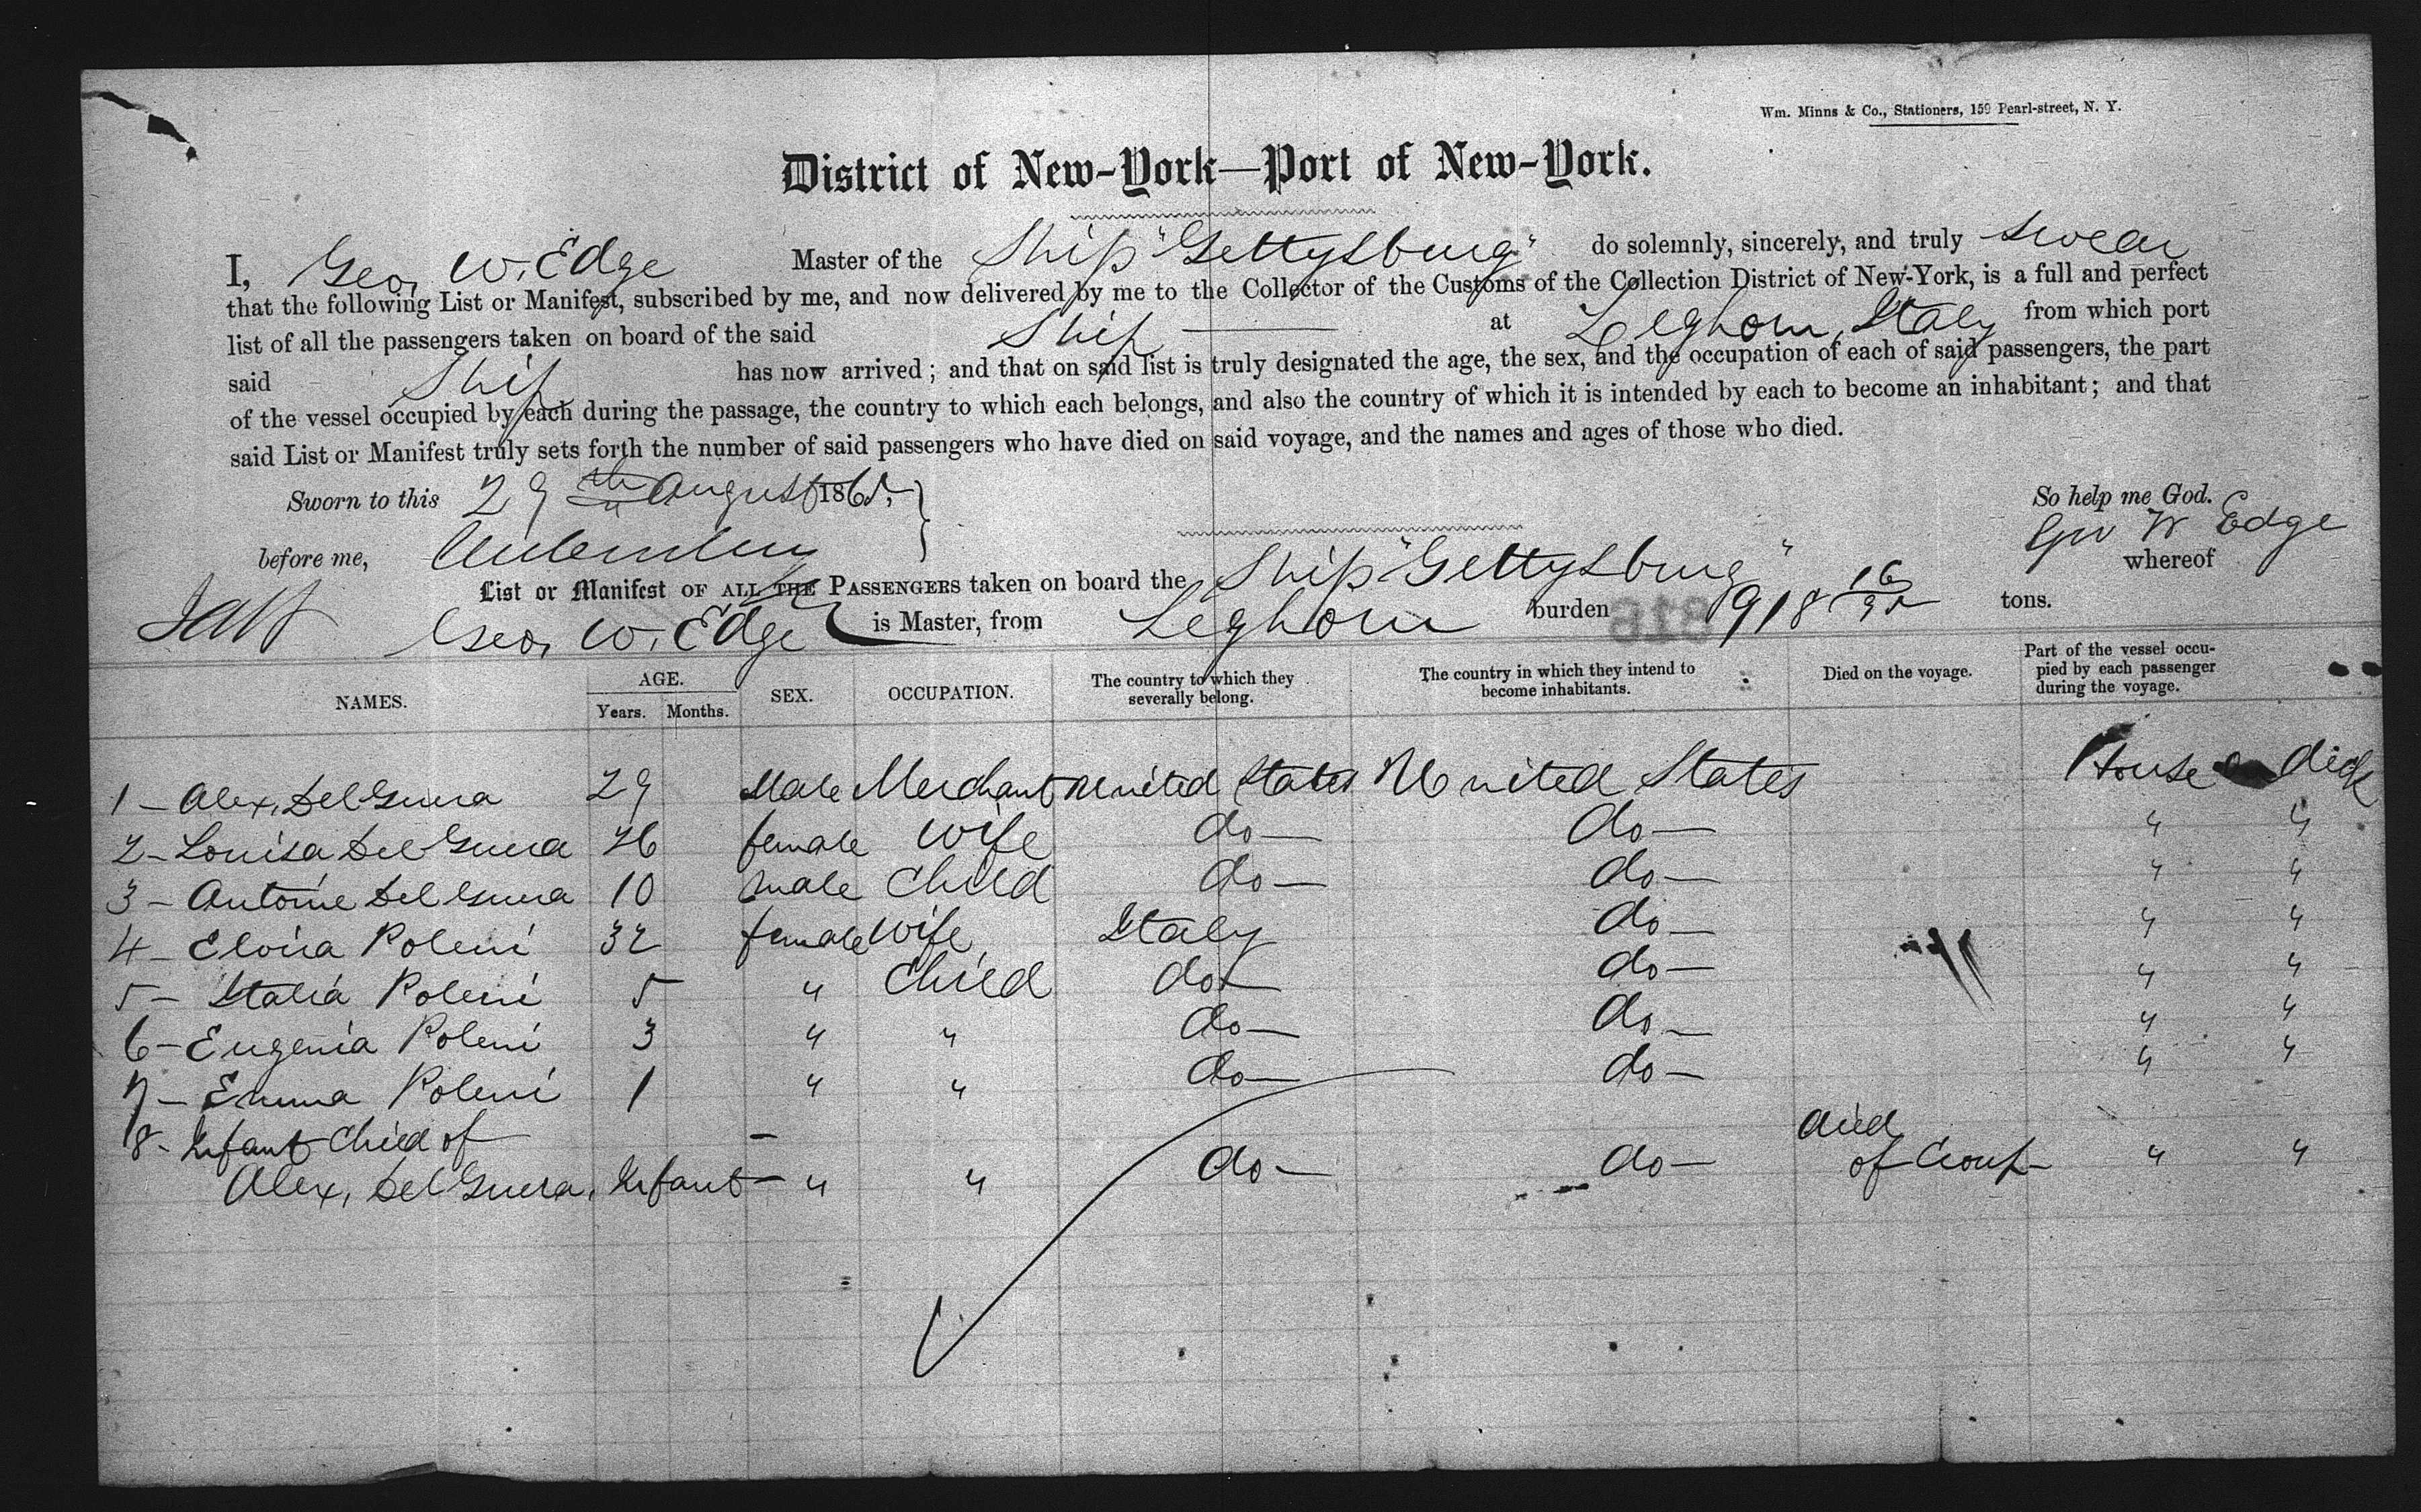 Wm. Minns & Co., Stationers, 159 Pearl-street, N. Y.
District of New-York—Port of New-York.
I, Geo. W. Edge Master of the Ship "Gettysburg" do solemnly, sincerely, and truly swear
that the following List or Manifest, subscribed by me, and now delivered by me to the Collector of the Customs of the Collection District of New-York, is a full and perfect
list of all the passengers taken on board of the said Ship at Leghorn, Italy from which port
said Ship has now arrived; and that on said list is truly designated the age, the sex, and the occupation of each of said passengers, the part
of the vessel occupied by each during the passage, the country to which each belongs, and also the country of which it is intended by each to become an inhabitant; and that
said List or Manifest truly sets forth the number of said passengers who have died on said voyage, and the names and ages of those who died.
Sworn to this 29th August 1865. So help me God.
before me, Geo W Edge
List or Manifest OF ALL THE PASSENGERS taken on board the Ship "Gettysburg" whereof
Geo. W. Edge is Master, from Leghorn burden 918 16/95 tons.
NAMES. AGE. Years. Months. SEX. OCCUPATION. The country to which they severally belong. The country in which they intend to become inhabitants. Died on the voyage. Part of the vessel occupied by each passenger during the voyage.
1 — Alex. Del Guerra 29 Male Merchant United States United States House on deck
2 — Louisa Del Guerra 26 female Wife do — do — " "
3 — Antonie Del Guerra 10 male Child do — do — " "
4 — Elvira Poleni 32 female Wife Italy do — " "
5 — Italia Poleni 5 " Child do — do — " "
6 — Eugenia Poleni 3 " " do — do — " "
7 — Emma Poleni 1 " " do — do — " "
8 - Infant Child of — died
Alex. Del Guerra, Infant — " " do — do — of Croup — " "